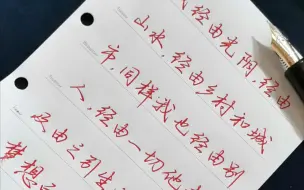 经由光阴经由
山水，经由乡村和城
市，同样我也经由别
人，经由一切他
及由之引生
梦想